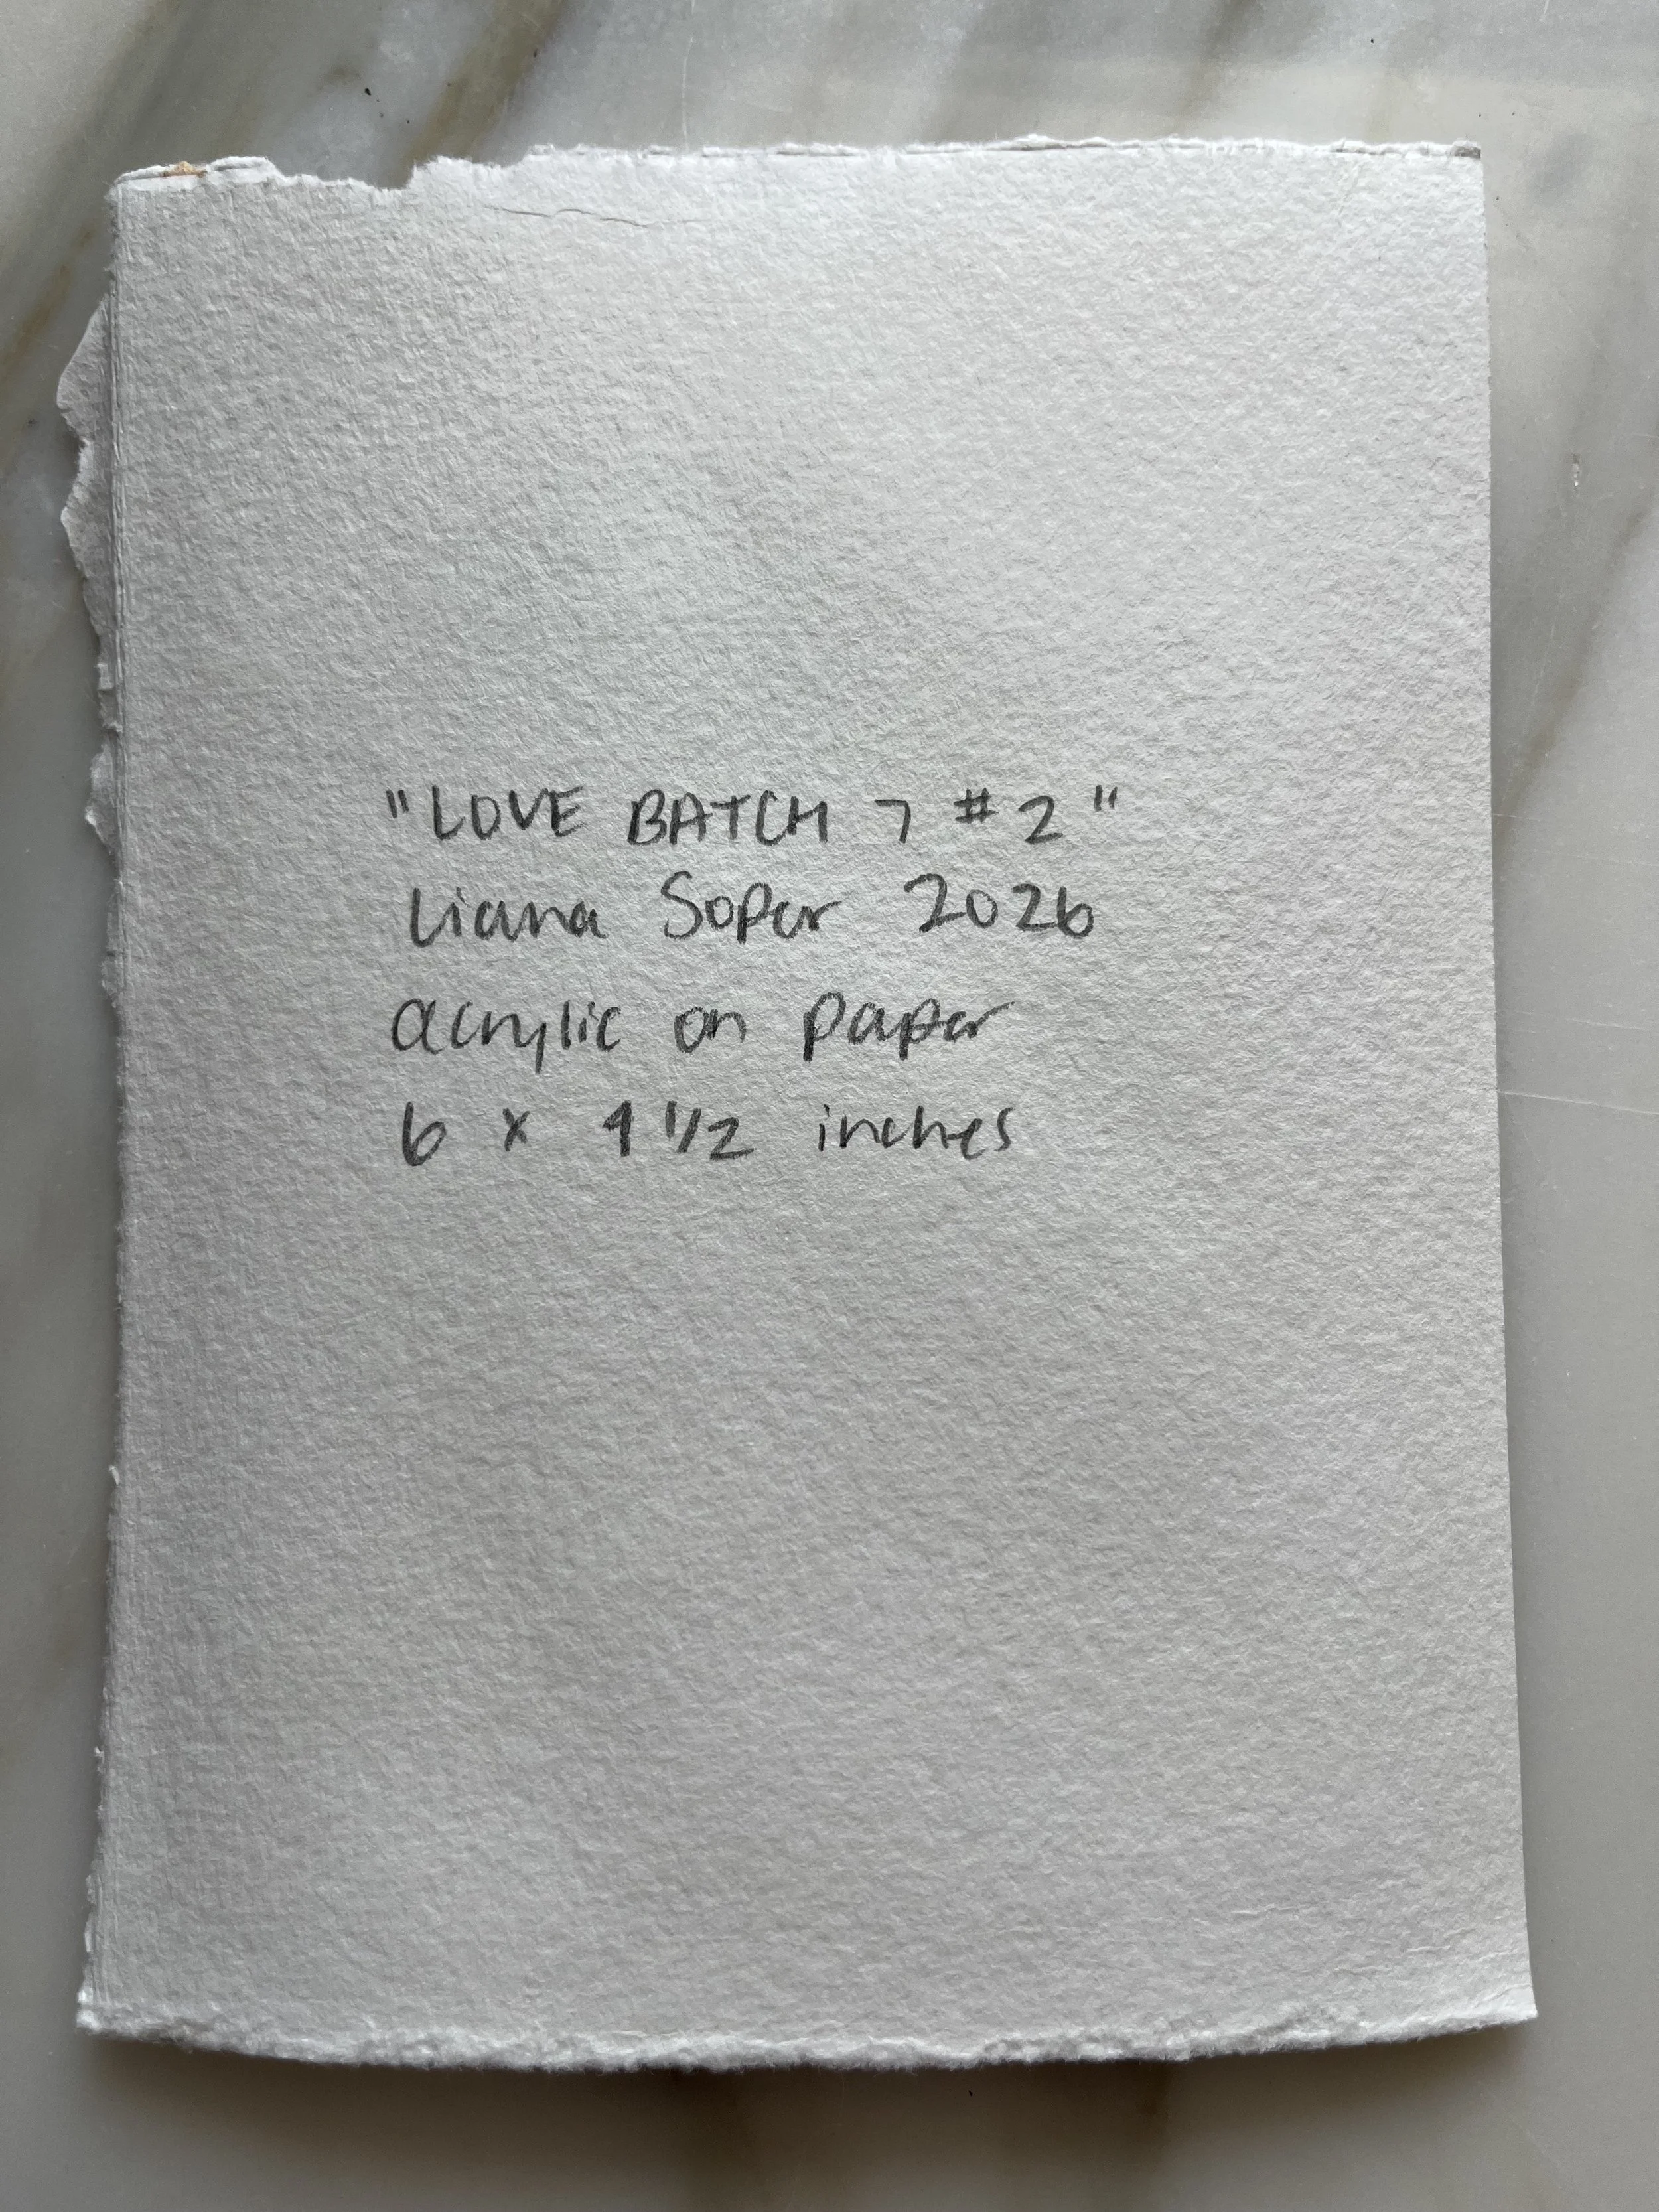 "LOVE BATCH 7 #2"
Liana Soper 2026
acrylic on paper
6 x 4 1/2 inches